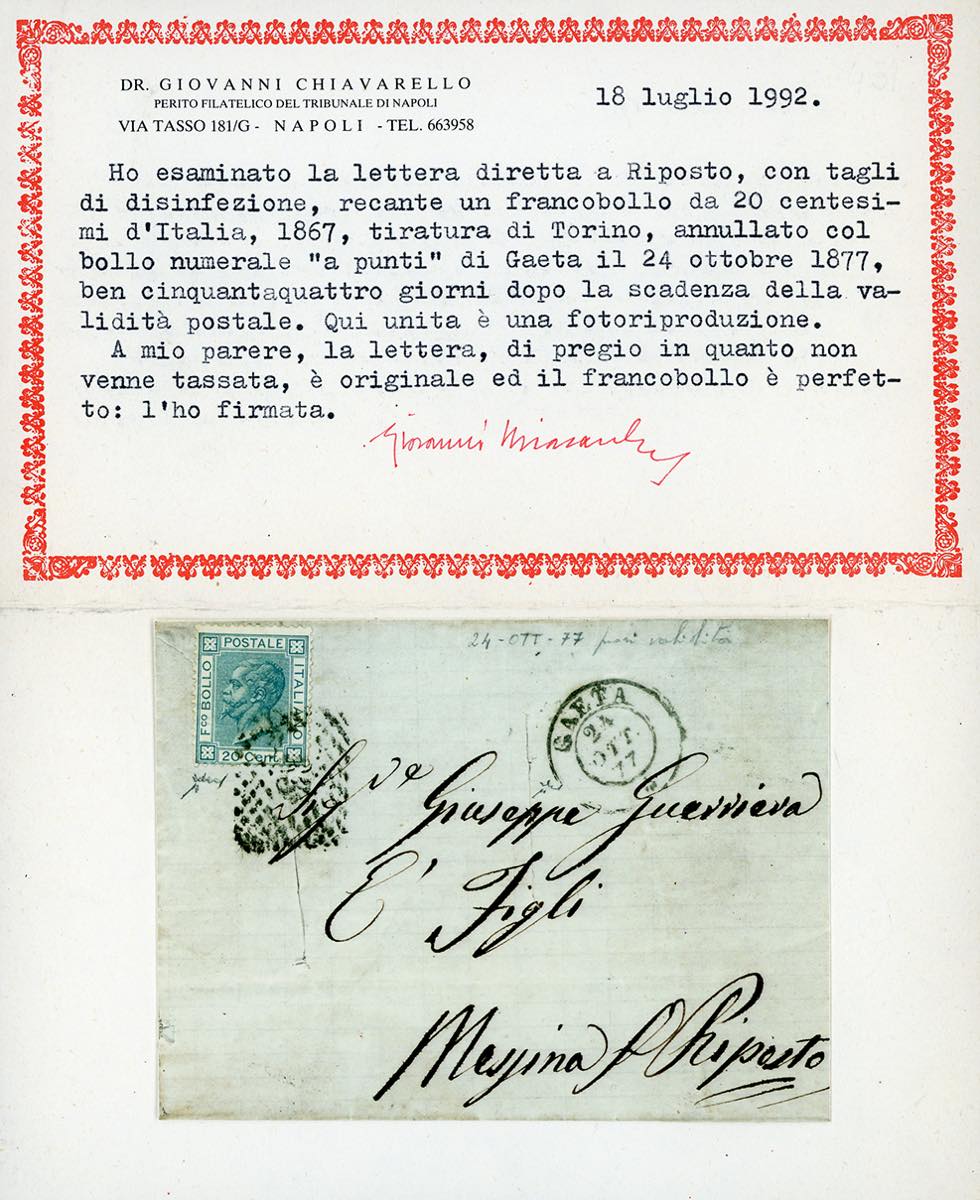 DR. GIOVANNI CHIAVARELLO
PERITO FILATELICO DEL TRIBUNALE DI NAPOLI
VIA TASSO 181/G - NAPOLI - TEL. 663958
18 luglio 1992.
Ho esaminato la lettera diretta a Riposto, con tagli
di disinfezione, recante un francobollo da 20 centesi-
mi d'Italia, 1867, tiratura di Torino, annullato col
bollo numerale "a punti" di Gaeta il 24 ottobre 1877,
ben cinquantaquattro giorni dopo la scadenza della va-
lidità postale. Qui unita è una fotoriproduzione.
A mio parere, la lettera, di pregio in quanto non
venne tassata, è originale ed il francobollo è perfet-
to: l'ho firmata.
24-OTT-77 fuori validità
POSTALE
Fco BOLLO
ITALIANO
20 Cent.
GAETA
24
OTT.
77
Giuseppe Guerriera
E' Figli
Messina Riposto